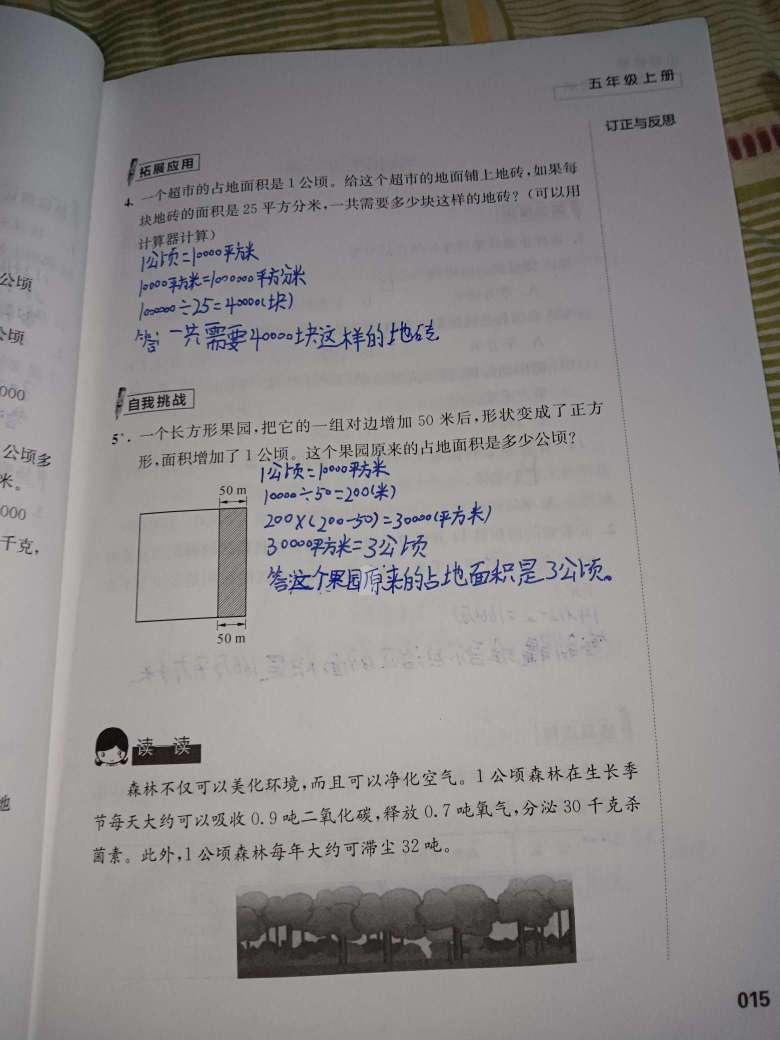 五年级上册
订正与反思
拓展应用
4. 一个超市的占地面积是1公顷。给这个超市的地面铺上地砖,如果每
块地砖的面积是25平方分米,一共需要多少块这样的地砖?(可以用
计算器计算)
1公顷=10000平方米
10000平方米=1000000平方分米
1000000÷25=40000(块)
答:一共需要40000块这样的地砖
自我挑战
5*. 一个长方形果园,把它的一组对边增加50米后,形状变成了正方
形,面积增加了1公顷。这个果园原来的占地面积是多少公顷?
1公顷=10000平方米
50 m
10000÷50=200(米)
200×(200-50)=30000(平方米)
30000平方米=3公顷
答:这个果园原来的占地面积是3公顷。
50 m
读一读
森林不仅可以美化环境,而且可以净化空气。1公顷森林在生长季
节每天大约可以吸收0.9吨二氧化碳,释放0.7吨氧气,分泌30千克杀
菌素。此外,1公顷森林每年大约可滞尘32吨。
015
公顷
公顷
000
公顷多
米。
000
千克,
地